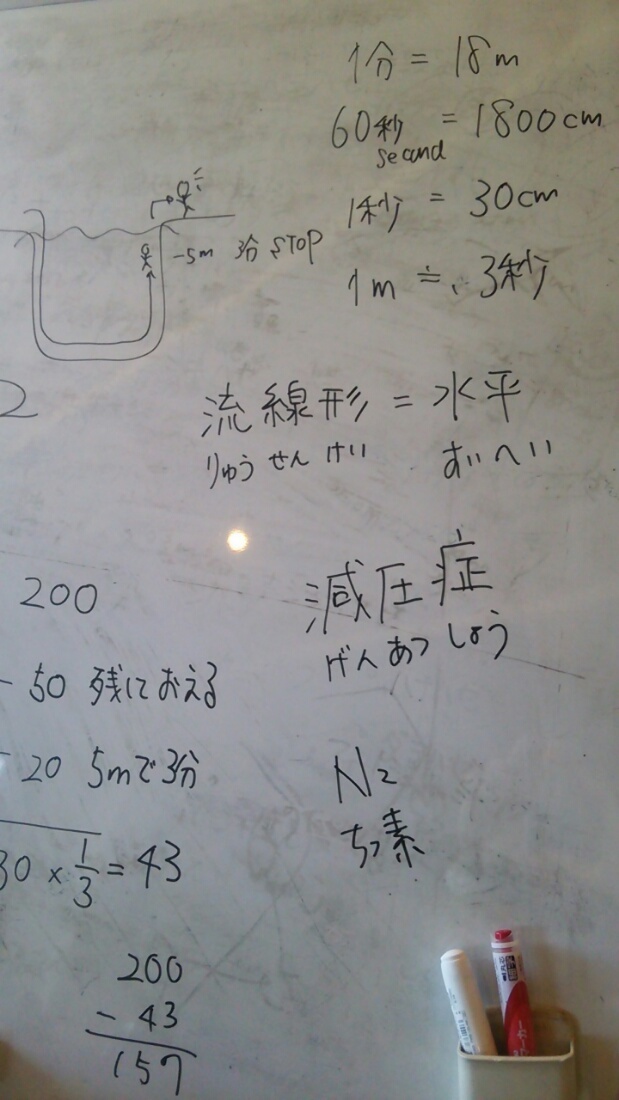 1分 = 18m
60秒 = 1800cm
secand
1秒 = 30cm
1m ≒ 3秒
-5m 3分 STOP
2
流線形 = 水平
りゅうせんけい すいへい
減圧症
げんあつしょう
N2
ちっ素
200
- 50 残においえる
- 20 5mで3分
30 × 1/3 = 43
200
- 43
157